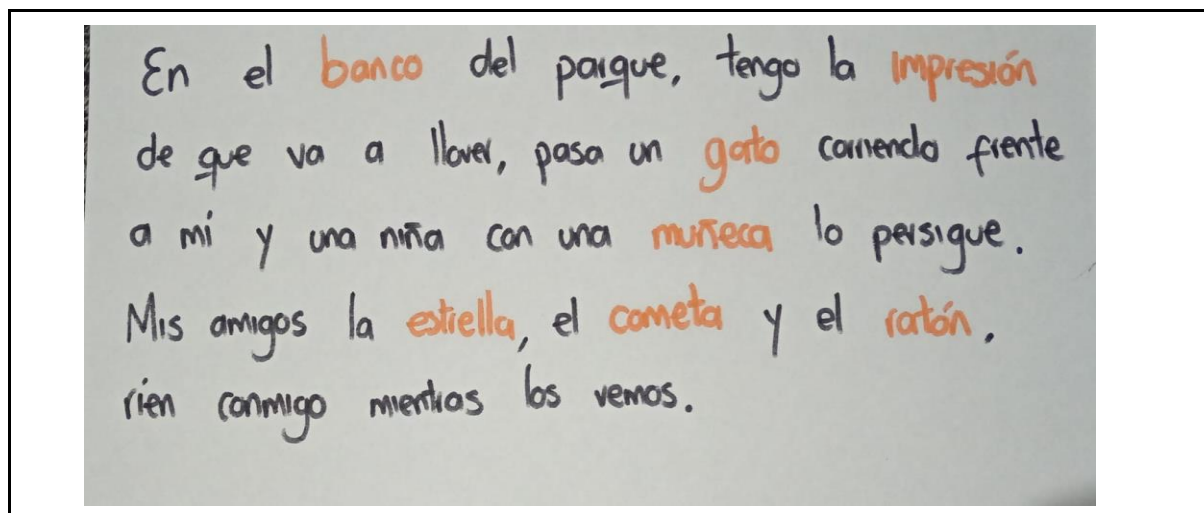 En el banco del parque, tengo la impresión
de que va a llover, pasa un gato corriendo frente
a mí y una niña con una muñeca lo persigue.
Mis amigos la estrella, el cometa y el ratón,
ríen conmigo mientras los vemos.